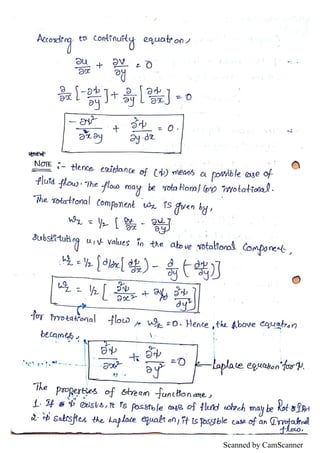 According to continuity equation,
∂u/∂x + ∂v/∂y = 0
∂/∂x [-∂ψ/∂y] + ∂/∂y [∂ψ/∂x] = 0
-∂ψ²/∂x∂y + ∂²ψ/∂y∂x = 0.
NOTE :- Hence existance of (ψ) means a possible case of
fluid flow. The flow may be rotational (or) irrotational.
The rotational component ωz is given by,
ωz = 1/2 [∂v/∂x - ∂u/∂y]
Substituting u,v values in the above rotational component,
ωz = 1/2 [d/dx[dψ/dx] - d/dy (-dψ/dy)]
ωz = 1/2 [∂²ψ/∂x² + ∂²ψ/dy²]
for Irrotational flow, ωz = 0. Hence, the above equation
becomes,
∂²ψ/∂x² + ∂²ψ/∂y² = 0 Laplace equation for ψ.
The properties of stream function are,
1. If ψ exists, it is possible case of fluid which may be Rot & IRR
2. ψ satisfies the Laplace equation, it is possible case of an Irrotational
flow.
Scanned by CamScanner